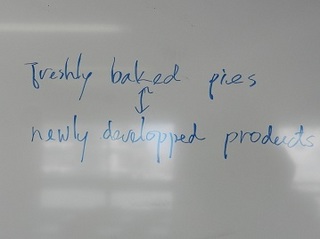 freshly baked pies
↕
newly developped products